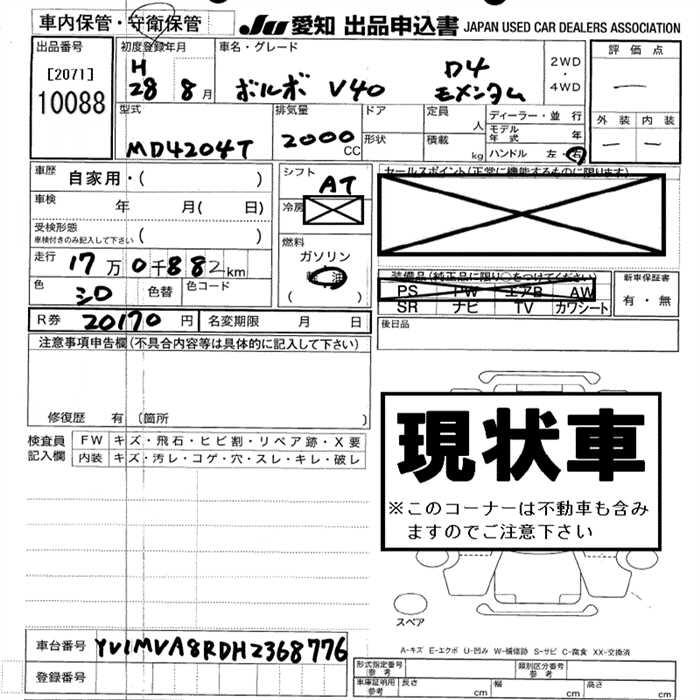 車内保管・守衛保管
JU 愛知 出品申込書 JAPAN USED CAR DEALERS ASSOCIATION
出品番号
[2071]
10088
初度登録年月
H
28 8 月
車名・グレード
D4
ボルボ V40 モメンタム
2WD
・
4WD
評価点
—
外装 内装
— —
型式
MD4204T
排気量
2000
CC
ドア
形状
定員
人
積載
kg
ディーラー・並行
モデル年式 年
ハンドル 左・右
車歴 自家用・( )
車検 年 月( 日)
受検形態
車検付きのみ記入して下さい ( )
走行 17万0千882km
色 シロ 色替 色コード
シフト AT
冷房
燃料
ガソリン
( )
セールスポイント(正常に機能するものに限ります)
装備品(純正品に限り○をつけてください)
PS PW エアB AW
SR ナビ TV カワシート
新車保証書
有・無
後日品
R券 20170 円 名変期限 月 日
注意事項申告欄(不具合内容等は具体的に記入して下さい)
修復歴 有 (箇所 )
検査員
記入欄
FW キズ・飛石・ヒビ割・リペア跡・X要
内装 キズ・汚レ・コゲ・穴・スレ・キレ・破レ
現状車
※このコーナーは不動車も含み
ますのでご注意下さい
スペア
A-キズ E-エクボ U-凹み W-補修跡 S-サビ C-腐食 XX-交換済
車台番号 YV1MVA8RDH2368776
登録番号
形式指定番号
参考
類別区分番号
参考
車庫証明用
参考
長さ cm 幅 cm 高さ cm